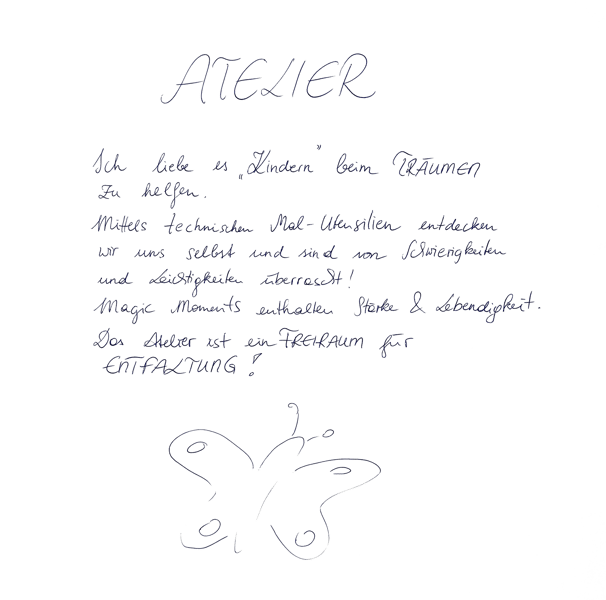 ATELIER
Ich liebe es „Kindern" beim TRÄUMEN
zu helfen.
Mittels technischen Mal-Utensilien entdecken
wir uns selbst und sind von Schwierigkeiten
und Leichtigkeiten überrascht!
Magic Moments enthalten Stärke & Lebendigkeit.
Das Atelier ist ein FREIRAUM für
ENTFALTUNG!